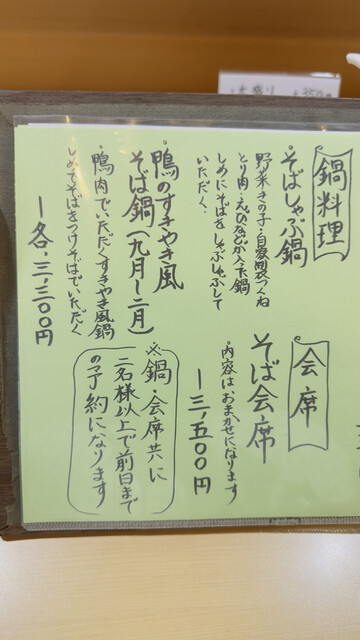 鍋料理
・そばしゃぶ鍋
野菜・きの子・自家製つくね
とり肉・えびなどが入った鍋
しめにそばをしゃぶしゃぶして
いただく。
・鴨のすきやき風
そば鍋(九月〜二月)
・鴨肉でいただくすきやき風鍋
しめてそばをつけそばでいただく
ー各、三、三〇〇円
会席
そば会席
・内容はおまかせになります
ー三、五〇〇円
※鍋・会席共に
二名様以上で前日まで
の予約になります